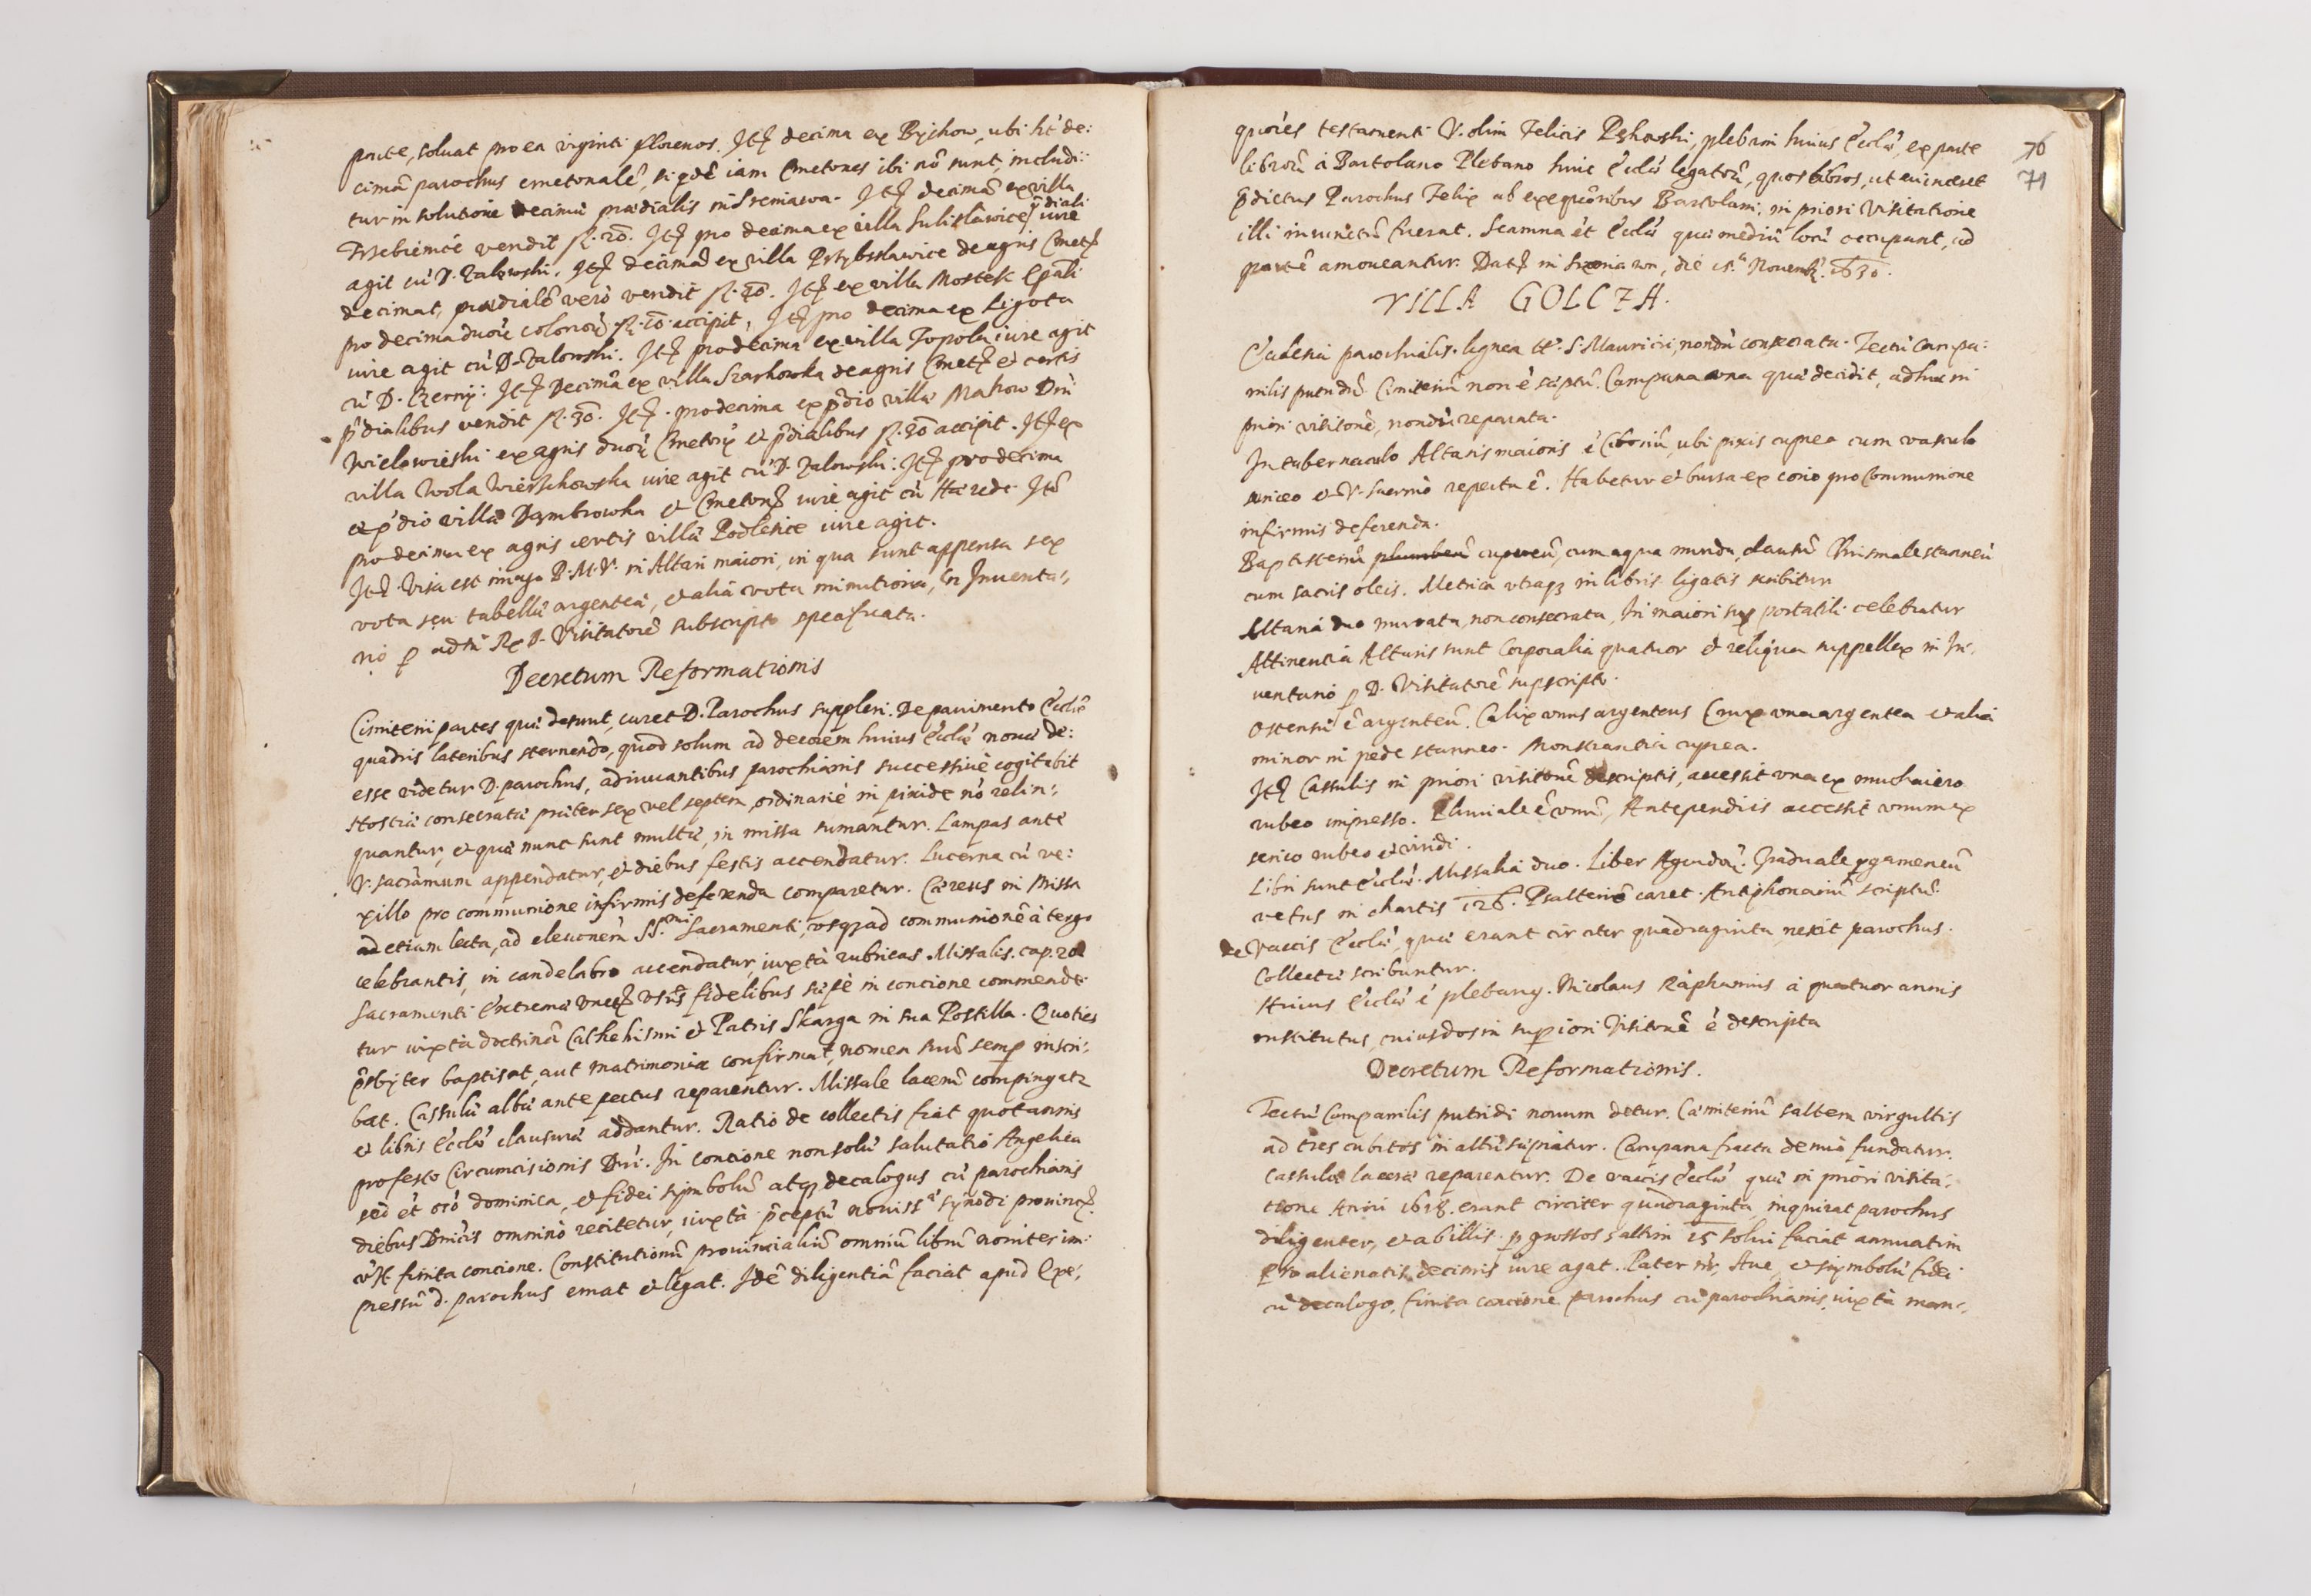 parte, soluat pro ea viginti florenos. Itē decima ex Bychow, ubi hr̃ de:
cimā parochus cmetonalē, siqdē iam Cmetones ibi nō sunt, includi:
tur in solutione decimæ prædialis in Sreniawa. Itē decimā ex villa
Trzebience vendit fl. 20. Itē pro decima ex villa Sulislawice p̄diali iure
agit cū D. Zalowski. Itē decimā ex villa Przybslawice de agris Cmetē
decimat, prædialē verò vendit fl. 20. Itē ex villa Mostek Ep̄ali
pro decima duorū colonorū fl. 10 accipit, Itē pro decima ex Ligota
iure agit cū D. Zalowski. Itē pro decima ex villa Topola iure agit
cū D. Czerny: Itē Decimā ex villa Szarkowka de agris Cmetē et certis
p̄dialibus vendit fl. 30. Itē pro decima ex p̄dio villæ Makow Dn̄i
Wielowieski ex agris duorū Cmetonū et p̄dialibus fl. 30 accipit. Itē ex
villa Wola Wierzchowska iure agit cū D. Zalowski: Itē pro decima
ex p̄dio villæ Dąmbrowka et Cmetonē iure agit cū Hærede. Itē
pro decima ex agris certis villæ Podlesice iure agit.
Itē. Visa est imago B.M.V. in Altari maiori, in qua sunt appensa sex
vota seu tabellæ argenteæ, et alia vota minutiora, in Inuenta:
rio p adm̄ Rx D. Visitatorē subscripto specificata.
Decretum Reformationis
Cimiterii partes quæ desunt, curet D. Parochus suppleri. De pauimento Ecclæ
quadris lateribus sternendo, quod solum ad decorem huius Ecclæ nouæ de:
esse videtur D. parochus, adiuuantibus parochianis successiuè cogitabit
Hostiæ consecratæ præter sex vel septem ordinariè in pixide nō relin:
quantur, et quæ nunc sunt multæ, in missa sumantur. Lampas ante
V. sacrāmum appendatur, et diebus festis accendatur. Lucerna cū ve:
xillo pro communione infirmis deferenda comparetur. Cæreus in Missa
ad etiam lecta, ad eleuonēm SS.mi Sacramenti, vsq; ad communionē à tergo
celebrantis, in candelabro accendatur, iuxtà rubricas Missalis. cap. 20
Sacramenti Extremæ vnctē vsus fidelibus sæpè in concione commende:
tur iuxtà doctrinā Cathehismi et Patris Skarga in sua Postilla. Quoties
p̄sbyter baptisat, aut matrimonia confirmat, nomen suū semp inscri:
bat. Cassulæ albæ ante pectus reparentur. Missale lacerū compingatr
et libris Ecclæ clausuræ addantur. Ratio de collectis fiat quotannis
pro festo Circumcisionis Dn̄i. In concione non solū salutatio Angelica
sed et orō dominica, et fidei symbolū atq; decalogus cū parochianis
diebus Dn̄icis omninò recitetur, iuxtà p̄ceptū nouissæ synodi prouincē.
finita concione. Constitutionū prouincialiū omniū librū nouiter im:
pressū D. parochus emat et legat. Idē diligentiā faciat apud Exe:
76
71
quōres testamenti V. olim Felicis Pękowski, plebani huius Ecclæ, ex parte
librorū à Bartolano Plebano huic Ecclæ legatorū, quos libros, ut euinceret
p̄dictus Parochus Felix ab exequōribus Bartolani, in priori Visitatione
illi iniunctū fuerat. Scamna et Ecclæ quæ mediū locū occupant, ad
partē amoueantur. Datē in Sreniawa, die 15.a Nouemb. 1630.
VILLA GOLCZA.
Ecclesia parochialis. lignea tt. S. Mauricii, nondū consecrata. Tectū Campa:
nilis putridū. Cimiteriū non ē sæptū. Campana vna quæ decidit, adhuc in
priori visitonē, nondū reparata.
In tabernaculo Altaris maioris ē Ciboriū, ubi pixis cuprea cum vasculo
sericeo et V. Sacrm̄o reperta ē. Habetur et bursa ex corio pro Communione
infirmis deferenda.
Baptisteriū plumbeū cupreū, cum aqua munda, clausū. Chrismale stanneū
cum sacris oleis. Metrica vtraq; in libris ligatis scribitur
Altaria duo murata, non consecrata, In maiori sup portatili celebratur
Attinentia Altaris sunt Corporalia quatuor et reliqua suppellex in In:
uentario p D. Visitatorē supscripto.
Ostensū ē argenteū. Calix vnus argenteus Crux vna argentea et alia
minor in pede stanneo. Monstrantia cuprea.
Itē Cassulis in priori visitonē descriptis, accessit vna ex muchaiero
rubeo impresso. Pluuiale ē vnū, Antependiis accessit vnum ex
serico rubeo et viridi.
Libri sunt Ecclæ. Missalia duo. Liber Agendorū. Graduale pgameneū
vetus in chartis 126. Psalteriō caret. Antiphonariū scriptū.
De Vaccis Ecclæ, quæ erant circiter quadraginta, nescit parochus.
Collectæ scribuntur.
Huius Ecclæ ē plebany. Nicolaus Raphainis à quatuor annis
institutus, cuius dos in supiori Visitonē ē descripta
Decretum Reformationis.
Tectū Campanilis putridi nouum detur. Cæmiteriū saltem virgultis
ad tres cubitos in altū sæpiatur. Campana fracta denuò fundatur.
Cassulæ laceræ reparentur. De vaccis Ecclæ quæ in priori visita:
tione Anni 1618. erant circiter quadraginta, inquirat parochus
diligenter, et ab illis p grossos saltim 15 solui faciat annuatim
Pro alienatis decimis iure agat. Pater nr̄, Aue, et symbolū fidei
cū decalogo, finita concione parochus cū parochianis, iuxtà man: